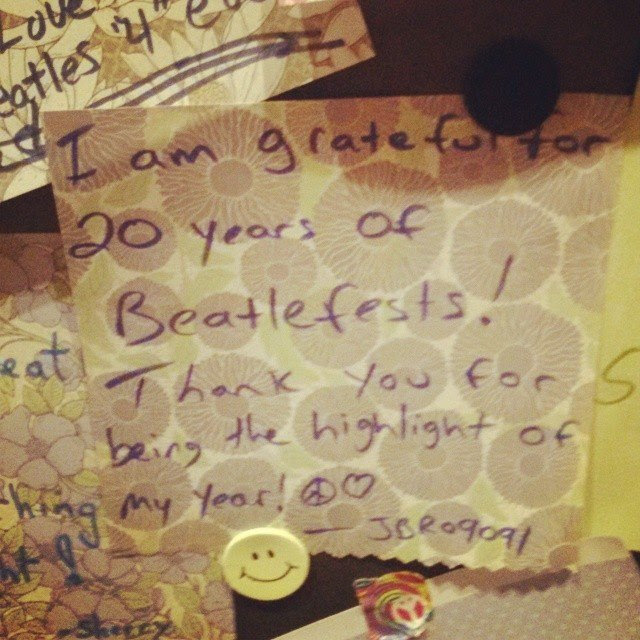 Love
Beatles "4" eve
I am grateful for
20 years of
Beatlefests!
Thank you for
being the highlight of
my year! ☮♡
— JBR09091
eat
hing
Sherry
S